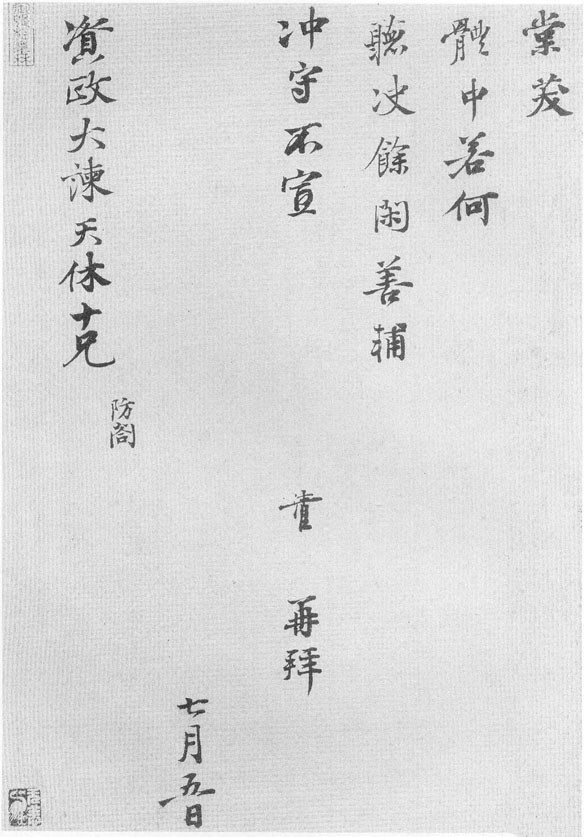 棠茂
體中若何
聽決餘閑善輔
沖守不宣
再拜
七月五日
資政大諫天休十兄
防閤